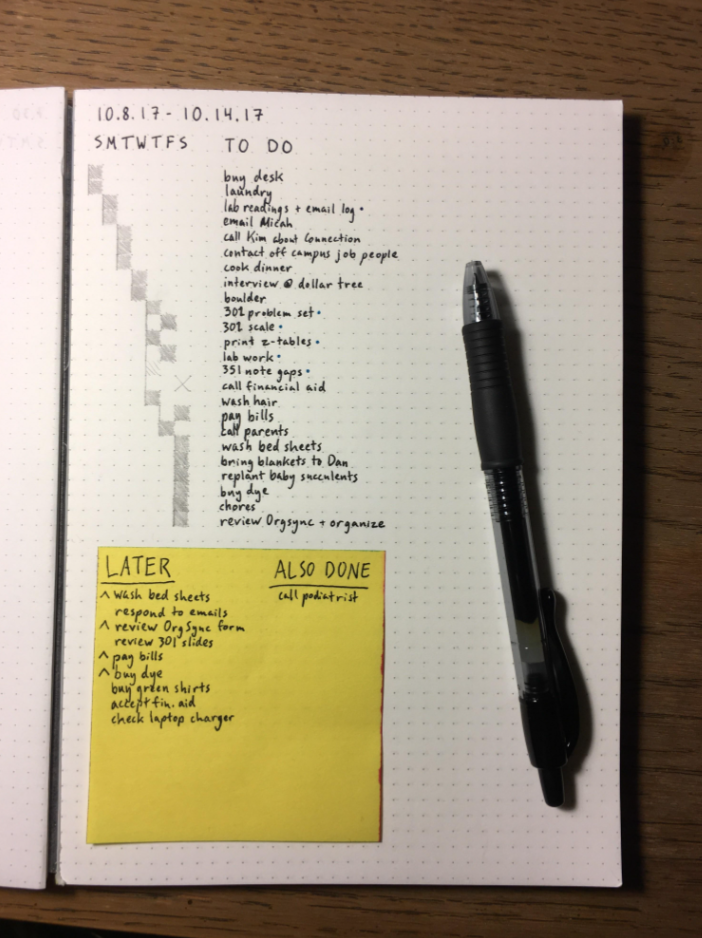 10.8.17 - 10.14.17
SMTWTFS TO DO
buy desk
laundry
lab readings + email log •
email Micah
call Kim about Connection
contact off campus job people
cook dinner
interview @ dollar tree
boulder
301 problem set •
301 scale •
print z-tables •
lab work •
351 note gaps •
call financial aid
wash hair
pay bills
call parents
wash bed sheets
bring blankets to Dan
replant baby succulents
buy dye
chores
review Orgsync + organize
LATER ALSO DONE
^ wash bed sheets call podiatrist
respond to emails
^ review OrgSync form
review 301 slides
^ pay bills
^ buy dye
buy green shirts
accept fin. aid
check laptop charger